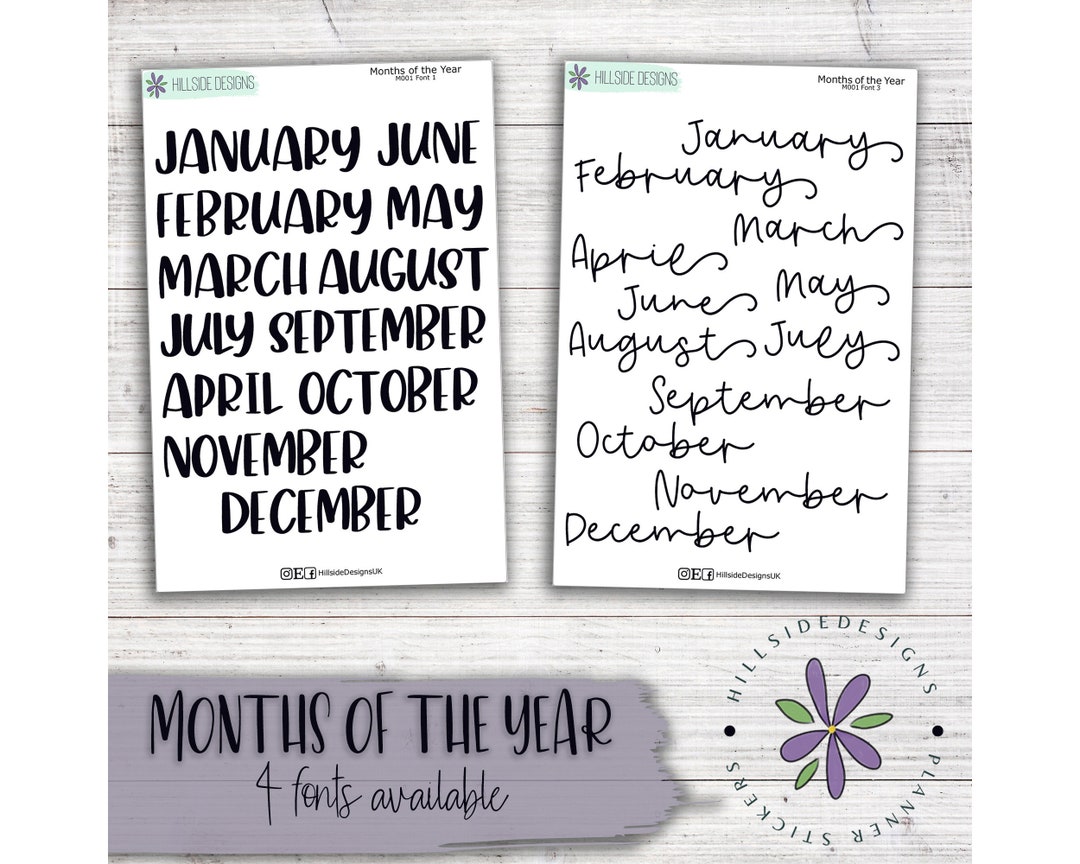 HILLSIDE DESIGNS
Months of the Year
M001 Font 1
JANUARY JUNE
FEBRUARY MAY
MARCH AUGUST
JULY SEPTEMBER
APRIL OCTOBER
NOVEMBER
DECEMBER
HillsideDesignsUK
HILLSIDE DESIGNS
Months of the Year
M001 Font 3
January
February
March
April
May
June
August July
September
October
November
December
HillsideDesignsUK
MONTHS OF THE YEAR
4 fonts available
HILLSIDEDESIGNS
PLANNER STICKERS